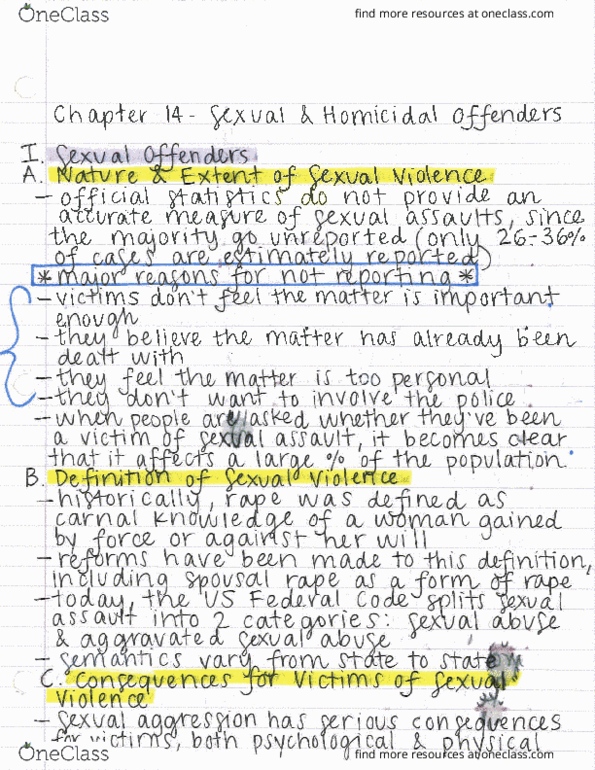 OneClass
find more resources at oneclass.com
Chapter 14 - Sexual & Homicidal Offenders
I. Sexual Offenders
A. Nature & Extent of Sexual Violence
- official statistics do not provide an
accurate measure of sexual assaults, since
the majority go unreported (only 26-36%
of cases are estimately reported)
*major reasons for not reporting*
- victims don't feel the matter is important
enough
- they believe the matter has already been
dealt with
- they feel the matter is too personal
- they don't want to involve the police
- when people are asked whether they've been
a victim of sexual assault, it becomes clear
that it affects a large % of the population.
B. Definition of Sexual Violence
- historically, rape was defined as
carnal knowledge of a woman gained
by force or against her will
- reforms have been made to this definition,
including spousal rape as a form of rape
- today, the US Federal Code splits sexual
assault into 2 categories: sexual abuse
& aggravated sexual abuse
- semantics vary from state to state
C. Consequences for Victims of Sexual
Violence
- sexual aggression has serious consequences
for victims, both psychological & physical
OneClass
find more resources at oneclass.com